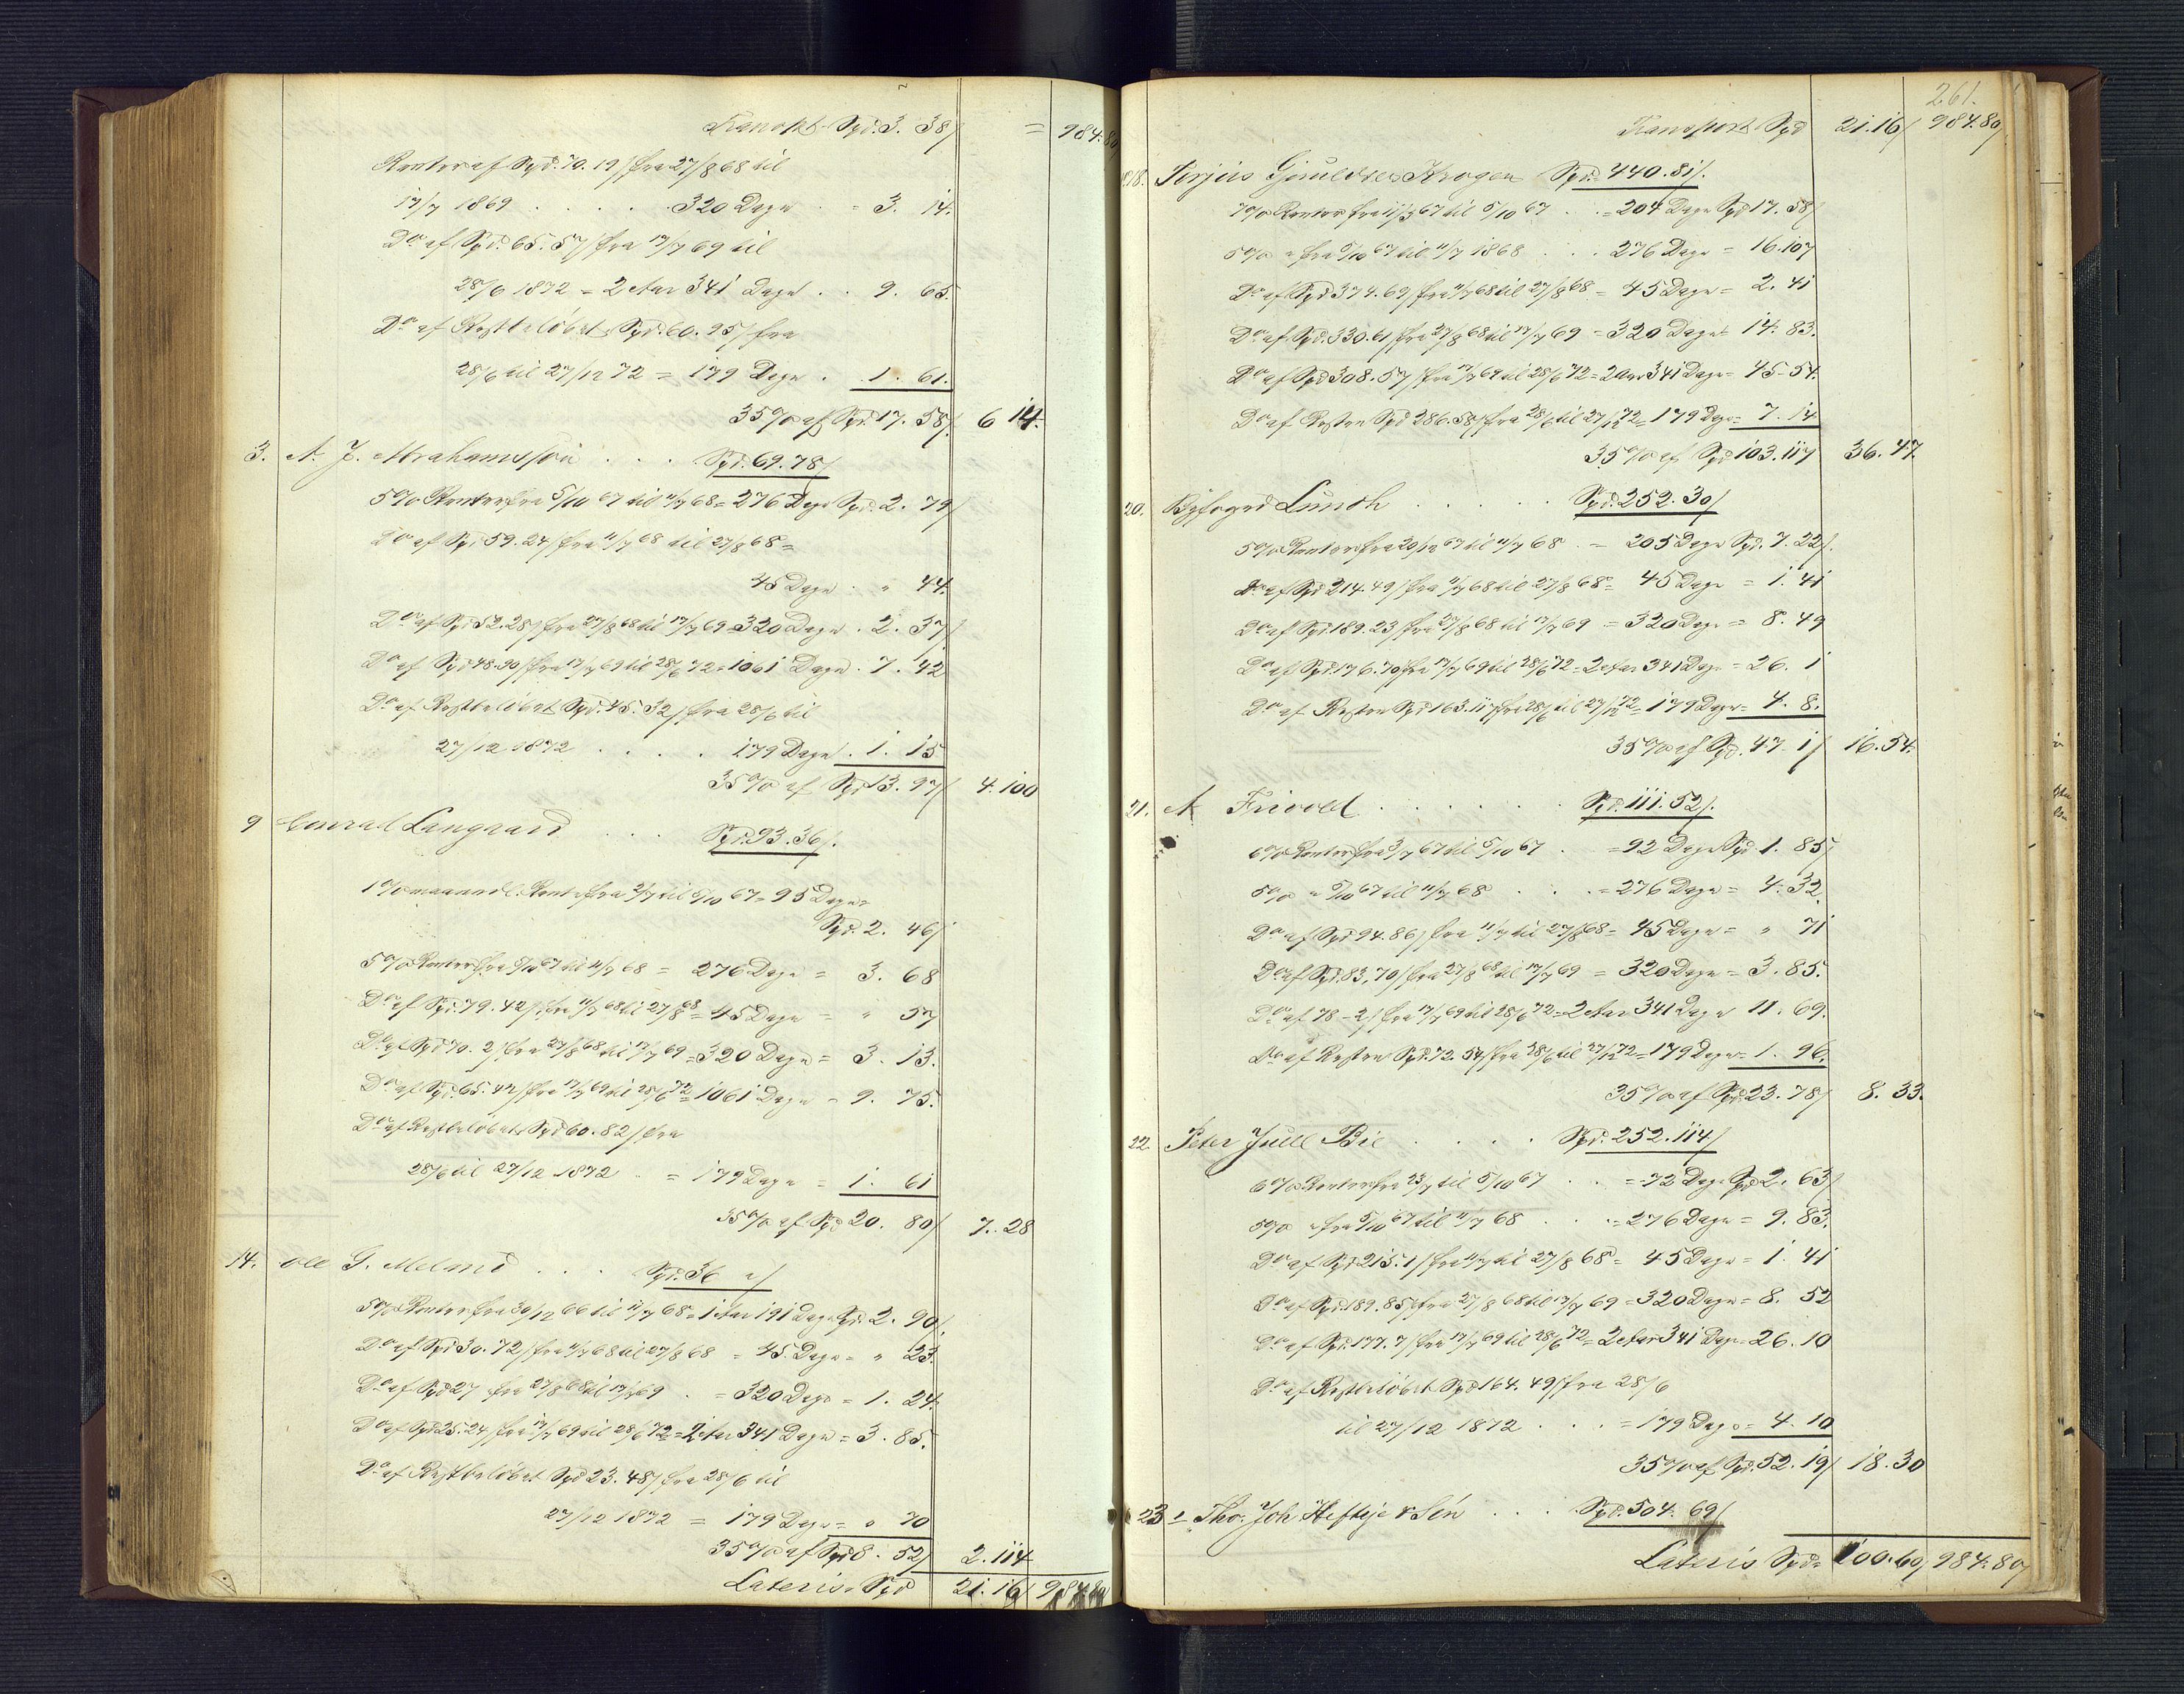 Transpt. Spd. 3. 38/ = 984.80/
Renter af Spd. 70. 19/ fra 27/8 68 til
17/7 1869 . . . . . 320 Dage . = 3. 14.
Do af Spd. 65. 57/ fra 17/7 69 til
28/6 1872 = 2 Aar 341 Dage . . 9. 65.
Do af Restbeløbet Spd. 60. 95/ fra
28/6 til 27/12 72 = 179 Dage . 1. 61.
35 % af Spd. 17. 58/. 6 14.
3. A. J. Abrahamsson . . . . Spd. 69. 78/
5 % Renter fra 5/10 67 til 11/7 68 = 276 Dage Spd. 2. 79/
Do af Spd 59. 24/ fra 11/7 68 til 27/8 68 =
45 Dage . „ 44.
Do af Spd 52. 28/ fra 27/8 68 til 17/7 69 = 320 Dage . 2. 37/
Do af Spd. 48. 90/ fra 17/7 69 til 28/6 72 = 1061 Dage . 7. 42
Do af Restbeløbet Spd. 45. 32/ fra 28/6 til
27/12 1872 . . . . 179 Dage . 1. 15
35 % af Spd 13. 97/ 4. 100
9 Conrad Langaard . . . Spd. 93. 36/.
1 % maanedl. Rente fra 2/7 til 5/10 67 = 95 Dage =
Spd. 2. 46/
5 % Renter fra 5/10 67 til 11/7 68 = 276 Dage = 3. 68
Do af Spd. 79. 42/ fra 11/7 68 til 27/8 68 = 45 Dage = „ 57
Do af Spd 70. 2/ fra 27/8 68 til 17/7 69 = 320 Dage = 3. 13.
Do af Spd. 65. 42/ fra 17/7 69 til 28/6 72 = 1061 Dage = 9. 75.
Do af Restbeløbet Spd 60. 82/ fra
28/6 til 27/12 1872 . = 179 Dage = 1. 61
35 % af Spd 20. 80/ 7. 28
14. Ole G. Meland . . . Spd. 36 „/
5 % Renter fra 30/12 66 til 11/7 68 = 1 Aar 191 Dage Spd. 2. 90/.
Do af Spd 30. 72/ fra 11/7 68 til 27/8 68 = 45 Dage = „ 23.
Do af Spd 27 fra 27/8 68 til 17/7 69 . = 320 Dage = 1. 24.
Do af Spd 25. 24/ fra 17/7 69 til 28/6 72 = 2 Aar 341 Dage = 3. 85.
Do af Restbeløbet Spd 23. 48/ fra 28/6 til
27/12 1872 = 179 Dage = „ 70
35 % af Spd 8. 52/ 2. 114
Lateris Spd 21. 16/ 984.80
261.
Transport Spd 21. 16/ 984.80/
18. Terjus Gjuuldres Krogen Spd. 440. 81/.
7 % Renter fra 11/3 67 til 5/10 67 . . = 204 Dage Spd 17. 58/
5 % „ fra 5/10 67 til 11/7 1868 . . . 276 Dage = 16. 107
Do af Spd 374. 69/ fra 11/7 68 til 27/8 68 = 45 Dage = 2. 41
Do af Spd. 330. 61/ fra 27/8 68 til 17/7 69 = 320 Dage = 14. 83.
Do af Spd 308. 57/ fra 17/7 69 til 28/6 72 = 2 Aar 341 Dage = 45. 54.
Do af Resten Spd 286. 58/ fra 28/6 til 27/12 72 = 179 Dage = 7. 14
35 % af Spd 103. 117 36. 47.
20. Byfoged Lundh . . . . . Spd. 252. 30/
5 % Renter fra 20/12 67 til 11/7 68 . = 205 Dage Spd. 7. 22/.
Do af Spd 214. 49/ fra 11/7 68 til 27/8 68 = 45 Dage = 1. 41
Do af Spd. 189. 23/ fra 27/8 68 til 17/7 69 = 320 Dage = 8. 49
Do af Spd. 176. 70/ fra 17/7 69 til 28/6 72 = 2 Aar 341 Dage = 26. 1
Do af Resten Spd 163. 117 fra 28/6 til 27/12 72 = 179 Dage = 4. 8.
35 % af Spd. 47. 1/ 16. 54.
21. A Frivold . . . . . . Spd. 111. 52/.
6 % Renter fra 3/7 67 til 5/10 67 . = 92 Dage Spd 1. 85/
5 % „ 5/10 67 til 11/7 68 . . . = 276 Dage = 4. 32.
Do af Spd 94. 86/ fra 11/7 til 27/8 68 = 45 Dage = „ 71
Do af Spd. 83. 70/ fra 27/8 68 til 17/7 69 = 320 Dage = 3. 85.
Do af 78 - 2/ fra 17/7 69 til 28/6 72 = 2 Aar 341 Dage 11. 69.
Do af Resten Spd. 72. 54/ fra 28/6 til 27/12 72 = 179 Dage = 1. 96.
35 % af Spd. 23. 78/ 8. 33.
22. Peter Juell Bie . . . . Spd. 252. 114/
6 % Renter fra 23/7 til 5/10 67 . . = 72 Dage Spd 2. 63/
5 % „ fra 5/10 67 til 11/7 68 . . . = 276 Dage = 9. 83.
Do af Spd 215. 1/ fra 11/7 til 27/8 68 = 45 Dage = 1. 41
Do af Spd. 189. 85/ fra 27/8 68 til 17/7 69 = 320 Dage = 8. 52
Do af Spd. 177. 7/ fra 17/7 69 til 28/6 72 = 2 Aar 341 Dage = 26. 10
Do af Restbeløbet Spd 164. 49/ fra 28/6
til 27/12 1872 . . . = 179 Dage = 4. 10
35 % af Spd. 52. 19/ 18. 30
23 = Tho. Joh Heftye & Søn . . . Spd. 504. 69/
Lateris Spd = 100. 60, 984. 80/